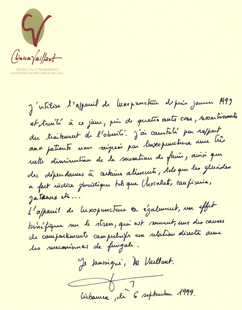 CV
J'utilise l'appareil de luxopuncture depuis janvier 1993
et traité à ce jour, près de quatre cents cas, essentiellement
du traitement de l'obésité. J'ai constaté par rapport
aux patients non soignés par luxopuncture une très
nette diminution de la sensation de faim, ainsi que
des dépendances à certains aliments, tels que les glucides
à fort indice glucidique tels que chocolats, confiseries,
gâteaux etc...
L'appareil de luxopuncture a également, un effet
bénéfique sur le stress, qui est souvent une des causes
de comportements compulsifs en relation directe avec
les mécanismes de fringale.
Je soussigné, Dr Vaillant.
le 6 septembre 1999.